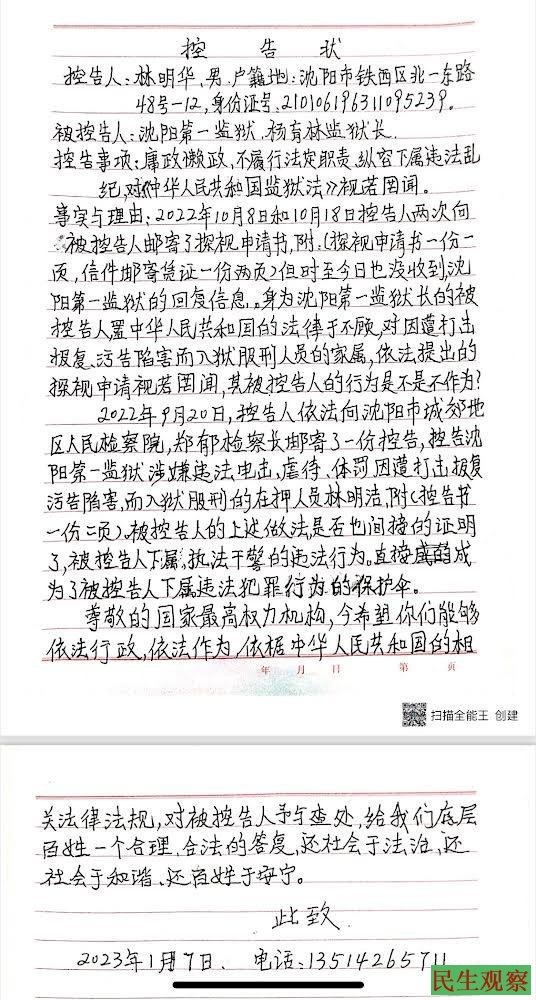 控告状
控告人:林明华、男、户籍地:沈阳市铁西区北一东路
48号-12,身份证号、210106196311095239。
被控告人:沈阳第一监狱、杨育林监狱长、
控告事项:庸政懒政、不履行法定职责、纵容下属违法乱
纪,对《中华人民共和国监狱法》视若罔闻。
事实与理由:2022年10月8日和10月18日控告人两次向
被控告人邮寄了探视申请书,附:(探视申请书一份一
页,信件邮寄凭证一份两页)但时至今日也没收到,沈
阳第一监狱的回复信息。身为沈阳第一监狱长的被
控告人,置中华人民共和国的法律于不顾,对因遭打击
报复、污告陷害而入狱服刑人员的家属,依法提出的
探视申请视若罔闻,其被控告人的行为是不是不作为?
2022年9月20日,控告人依法向沈阳市城郊地
区人民检察院,郑郁检察长邮寄了一份控告,控告沈
阳第一监狱涉嫌违法电击,虐待、体罚因遭打击报复
污告陷害,而入狱服刑的在押人员林明洁,附(控告书
一份二页)。被控告人的上述做法是否也间接的证明
了,被控告人下属,执法干警的违法行为。直接的成
为了被控告人下属违法犯罪行为的保护伞。
尊敬的国家最高权力机构,今希望你们能够
依法行政,依法作为,依据中华人民共和国的相
年 月 日 第 页
扫描全能王 创建
关法律法规,对被控告人予与查处,给我们底层
百姓一个合理、合法的答复,还社会于法治,还
社会于和谐、还百姓于安宁。
此致
2023年1月7日、 电话:13514265711
民生观察